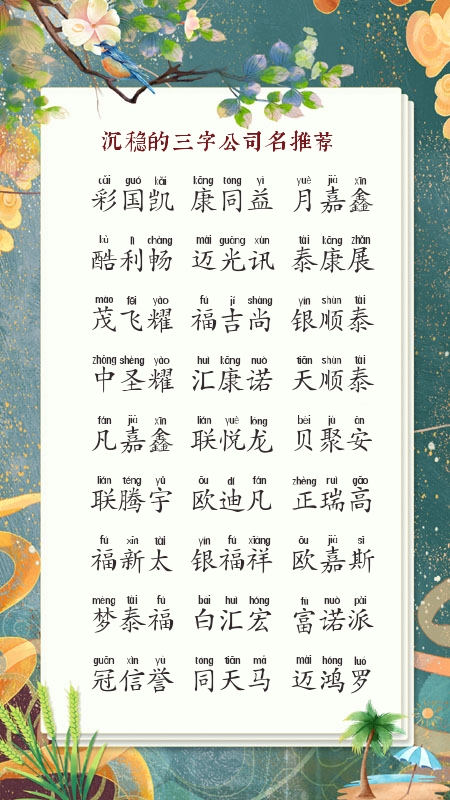 沉稳的三字公司名推荐
cǎi guó kǎi kāng tóng yì yuè jiā xīn
彩国凯 康同益 月嘉鑫
kù lì chàng mài guāng xùn tài kāng zhǎn
酷利畅 迈光讯 泰康展
mào fēi yào fú jí shàng yín shùn tài
茂飞耀 福吉尚 银顺泰
zhōng shèng yào huì kāng nuò tiān shùn tài
中圣耀 汇康诺 天顺泰
fán jiā xīn lián yuè lóng bèi jù ān
凡嘉鑫 联悦龙 贝聚安
lián téng yǔ ōu dí fán zhèng ruì gāo
联腾宇 欧迪凡 正瑞高
fú xīn tài yín fú xiáng ōu jiā sī
福新太 银福祥 欧嘉斯
mèng tài fú bái huì hóng fù nuò pài
梦泰福 白汇宏 富诺派
guān xìn yù tóng tiān mǎ mài hóng luó
冠信誉 同天马 迈鸿罗